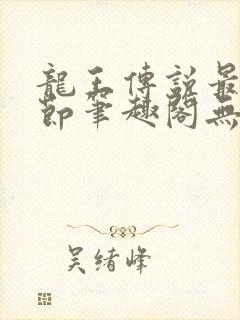 龍王傳說最
節筆趣閣無
吳绪峰